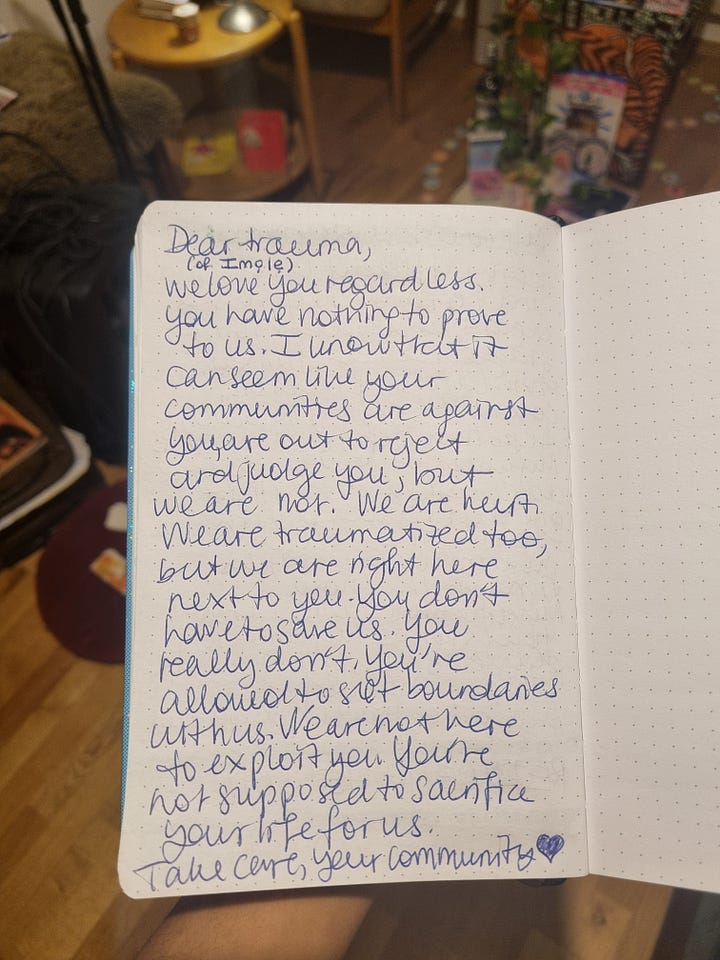 Dear trauma,
(of Imole)
we love you regardless.
you have nothing to prove
to us. I know that it
can seem like your
communities are against
you, are out to reject
and judge you, but
we are not. We are hurt.
We are traumatized too,
but we are right here
next to you. You don't
have to save us. You
really don't. You're
allowed to set boundaries
with us. We are not here
to exploit you. You're
not supposed to sacrifice
your life for us.
Take care, your community